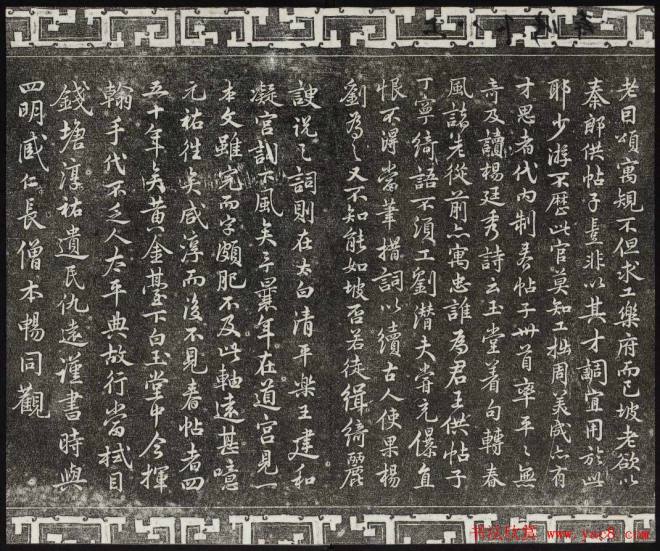 老目頌寓規不但求工樂府而已坡老欲以
秦郎供帖子豈非以其才調宜用於此
耶少游不歷此官莫知工拙周美成亦有
才思者代內制春帖子卅首率平〻無
奇及讀楊廷秀詩云玉堂著句轉春
風諸老從前亦寓忠誰為君王供帖子
丁寧綺語不須工劉潛夫嘗充儤直
恨不得當筆措詞以續古人使果楊
劉為之又不知能如坡否若徒緝綺麗
諛說之詞則在太白清平樂王建和
凝宮詞下風矣予曩年在道宮見一
本文雖完而字頗肥不及此軸遠甚噫
元祐往矣咸淳而後不見春帖者四
五十年矣黃金臺下白玉堂中今揮
翰手代不乏人太平典故行當拭目
錢塘淳祐遺民仇遠謹書時與
四明戚仁長僧本暢同觀
书法欣赏 www.yac8.com